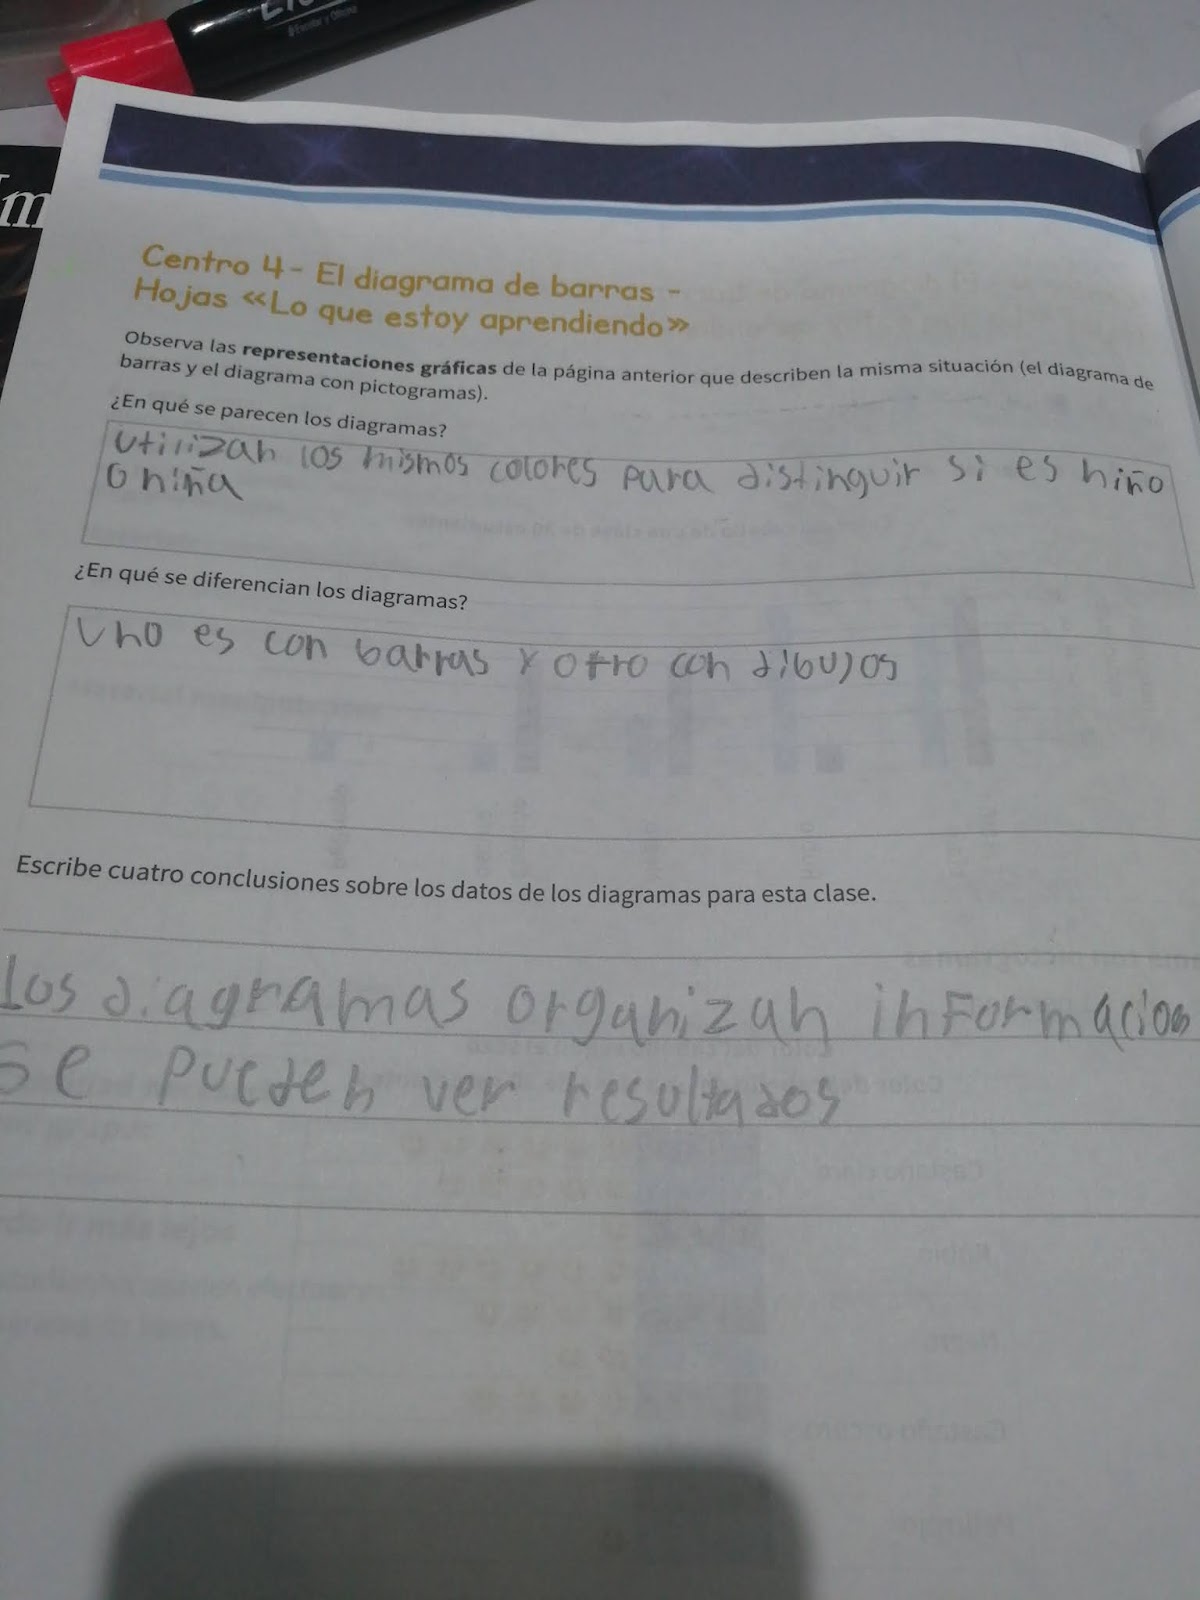 Escolar y Oficina
Centro 4 - El diagrama de barras -
Hojas «Lo que estoy aprendiendo»
Observa las representaciones gráficas de la página anterior que describen la misma situación (el diagrama de
barras y el diagrama con pictogramas).
¿En qué se parecen los diagramas?
utilizan los mismos colores para distinguir si es niño
o niña
¿En qué se diferencian los diagramas?
Uno es con barras y otro con dibujos
Escribe cuatro conclusiones sobre los datos de los diagramas para esta clase.
los diagramas organizan informacion
se pueden ver resultados